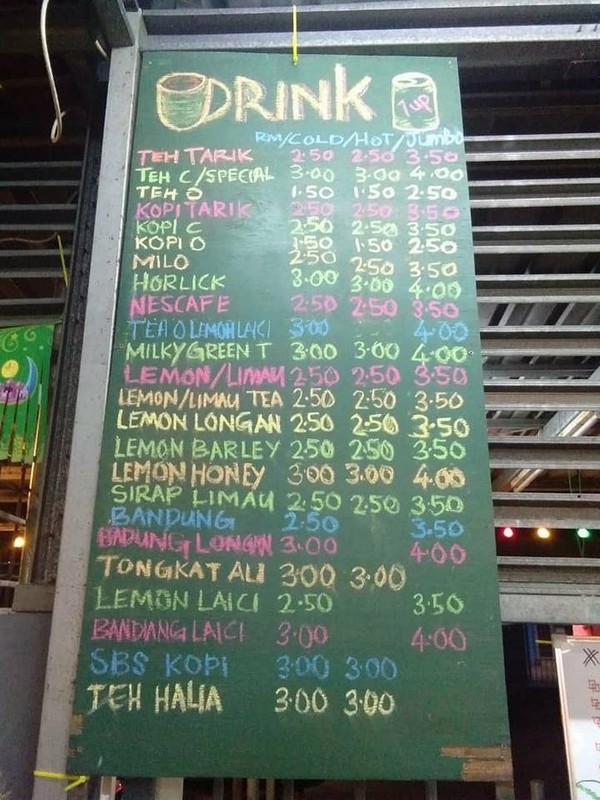 DRINK
7up
RM/COLD/HOT/Jumbo
TEH TARIK 2.50 2.50 3.50
TEH C/SPECIAL 3.00 3.00 4.00
TEH O 1.50 1.50 2.50
KOPI TARIK 2.50 2.50 3.50
KOPI C 2.50 2.50 3.50
KOPI O 1.50 1.50 2.50
MILO 2.50 2.50 3.50
HORLICK 3.00 3.00 4.00
NESCAFE 2.50 2.50 3.50
TEA O LEMON LAICI 3.00 4.00
MILKY GREEN T 3.00 3.00 4.00
LEMON/LIMAU 2.50 2.50 3.50
LEMON/LIMAU TEA 2.50 2.50 3.50
LEMON LONGAN 2.50 2.50 3.50
LEMON BARLEY 2.50 2.50 3.50
LEMON HONEY 3.00 3.00 4.00
SIRAP LIMAU 2.50 2.50 3.50
BANDUNG 2.50 3.50
BADUNG LONGAN 3.00 4.00
TONGKAT ALI 3.00 3.00
LEMON LAICI 2.50 3.50
BANDIANG LAICI 3.00 4.00
SBS KOPI 3.00 3.00
TEH HALIA 3.00 3.00